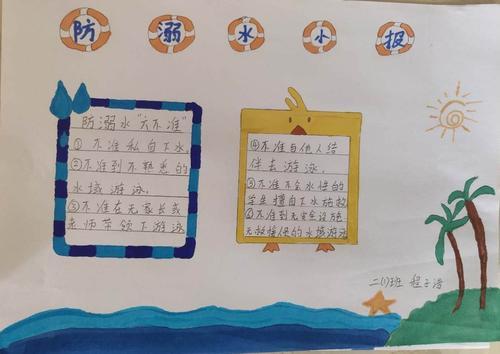 防溺水小报
防溺水“六不准”
①不准私自下水,
②不准到不熟悉的
水域游泳,
③不准在无家长或
老师带领下游泳
④不准与他人结
伴去游泳,
⑤不准不会水性的
学生擅自下水施救
⑥不准到无安全设施
无救援保的水域游泳
二(1)班 程子浩